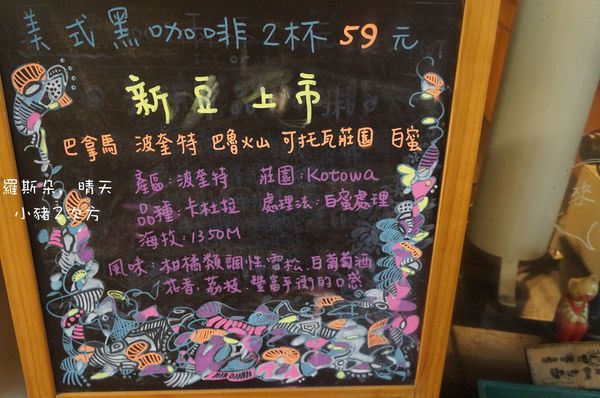 美式黑咖啡2杯59元
新豆上市
巴拿馬 波奎特 巴魯火山 可托瓦莊園 白蜜
產區:波奎特 莊園:Kotowa
品種:卡杜拉 處理法:白蜜處理
海拔:1350M
風味:柑橘類調性,雪松,白葡萄酒
花香.荔枝.豐富平衡的口感
羅斯朵, 晴天
小豬2次方
來
咖啡
歡迎